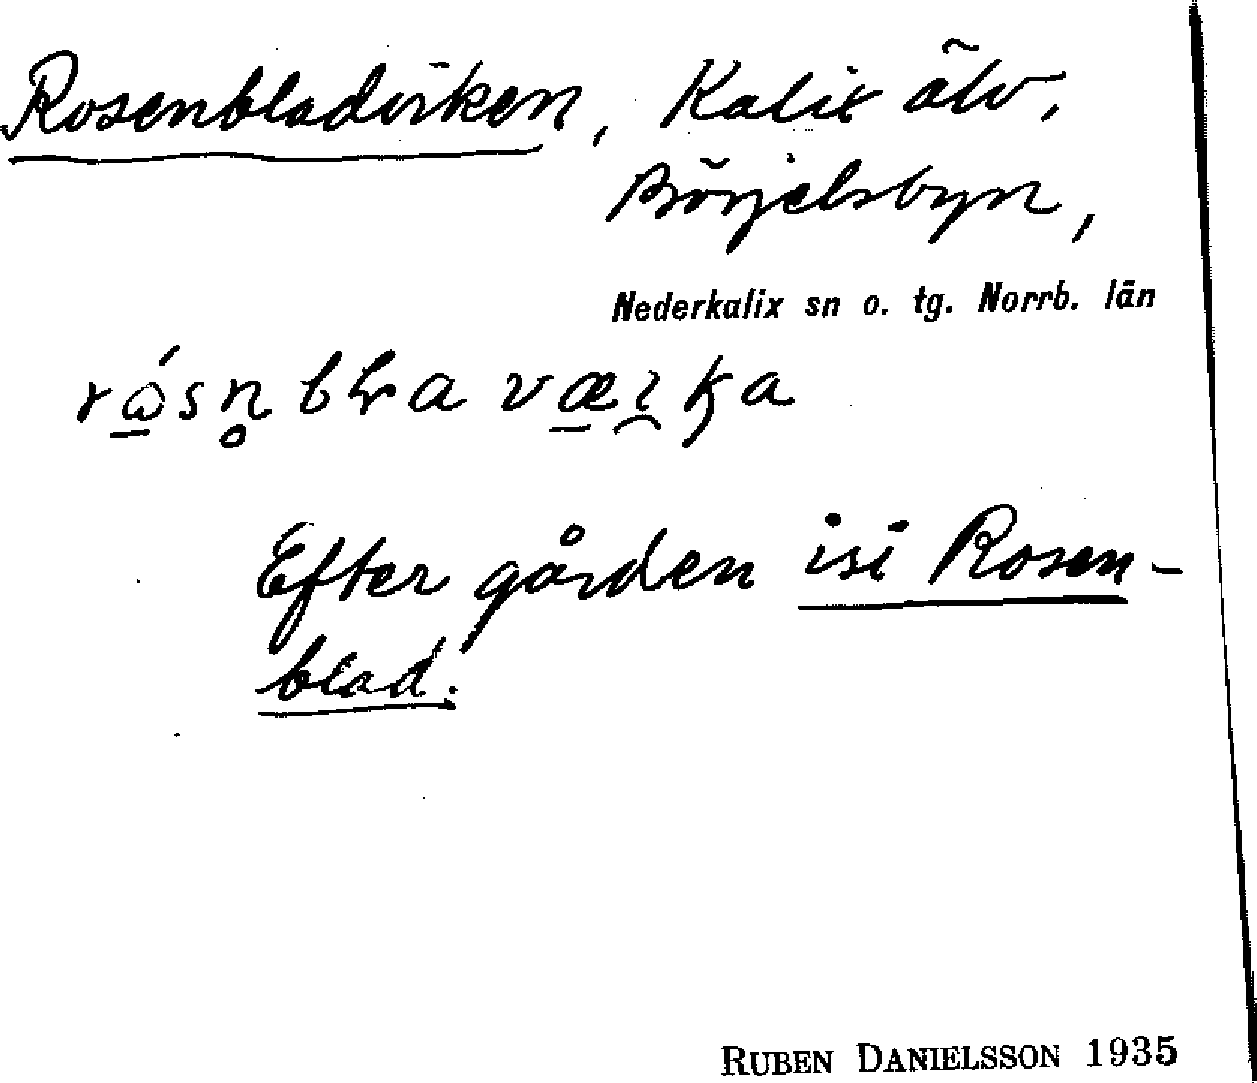 Rosenbladviken, Kalix älv,
Börjelsbyn,
Nederkalix sn o. tg. Norrb. län
Efter gården isi Rosen-
blad.
RUBEN DANIELSSON 1935